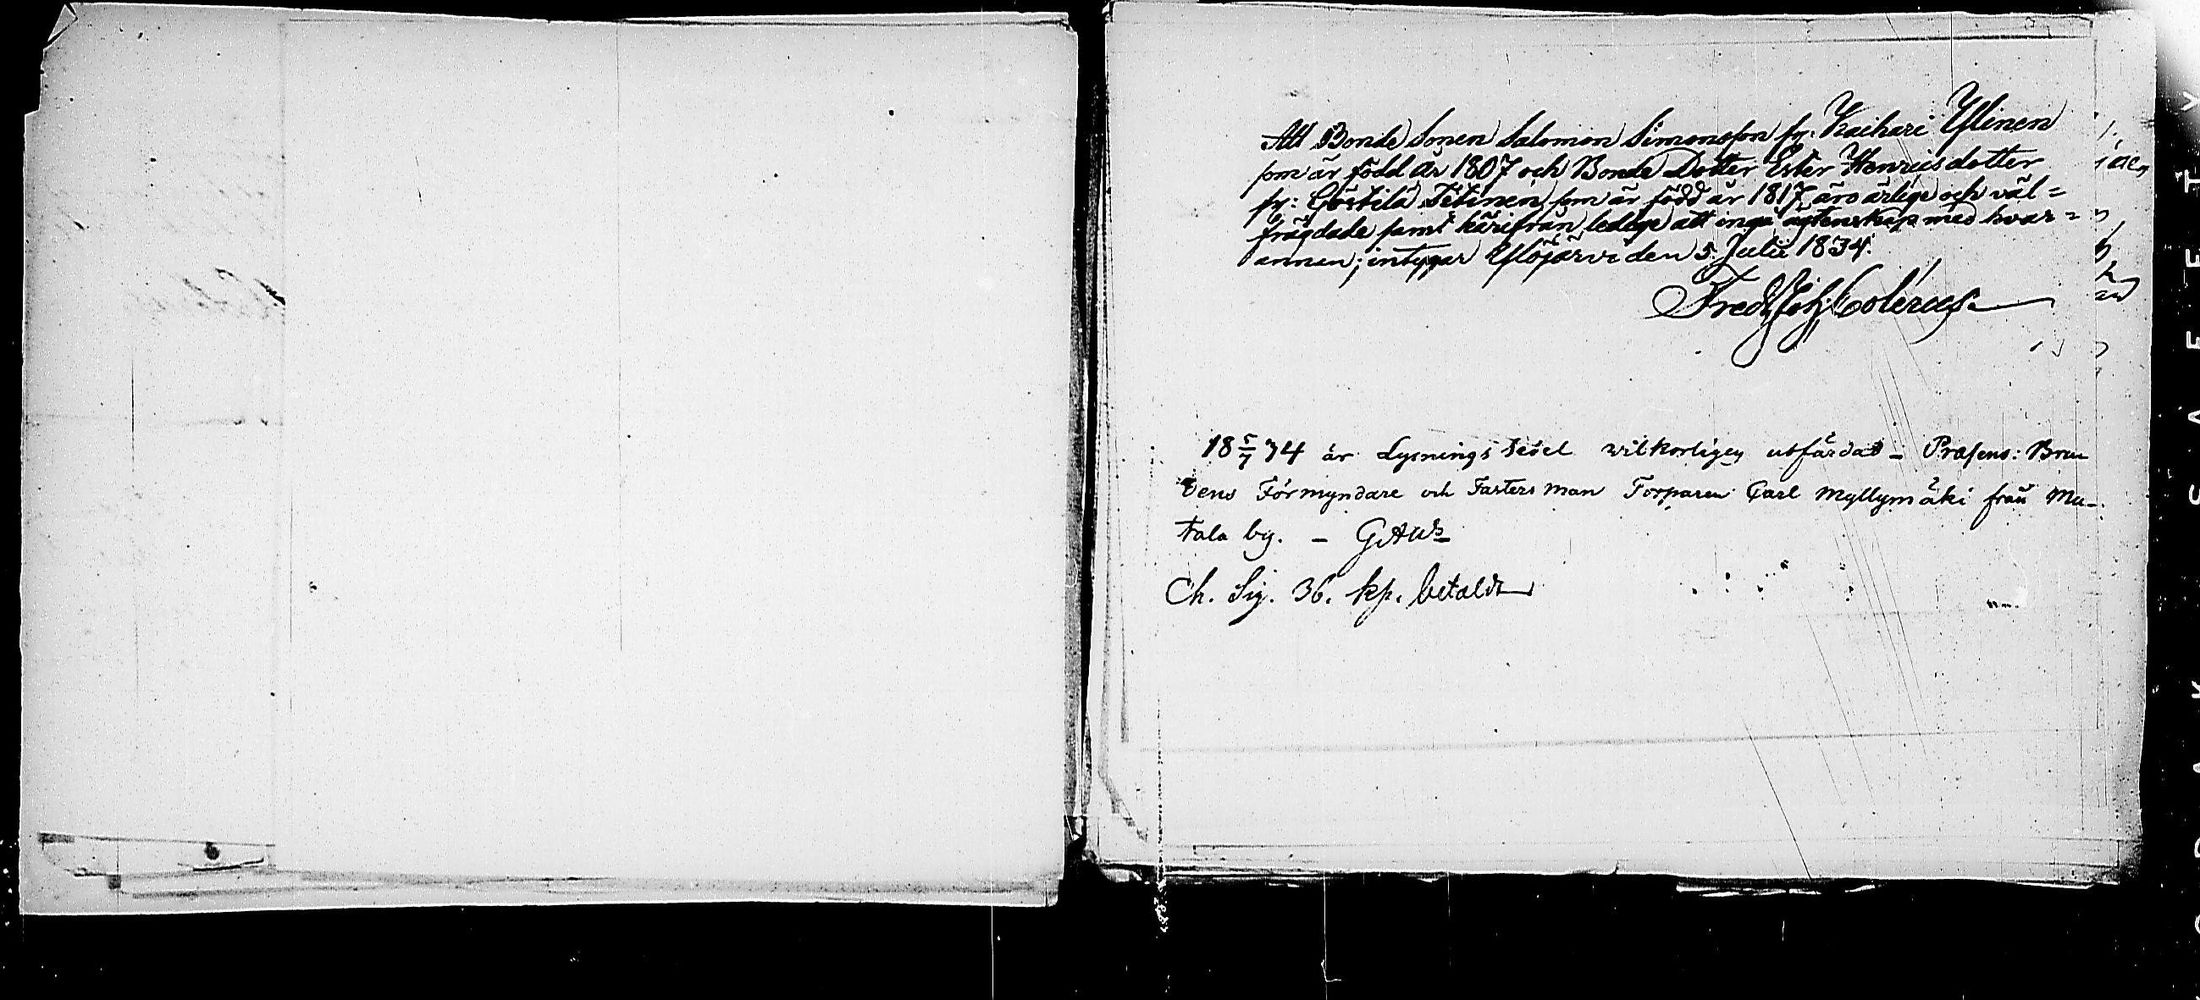 Att Bonde Sonen Salomon Simonsson fr. Kaihari Ylinen
som är född år 1807 och Bonde Dotter Ester Henricsdotter
fr: Göstilä Titinen som är född år 1817, äro ärlige och väl=
frägdade samt härifrån ledige att ingå äktenskap med hvar=
annan; intygar Ylöjärvi den 5. Julii 1834.
Fredr Joh: Colérus.
18 5/7 34 är Lysnings Sedel vilkorligen utfärdad – Præsens: Bru
dens Förmyndare och Fasters man Torparen Carl Myllymäki från Mu-
tala by. –
Ch. Sig. 36. kp. betaldt